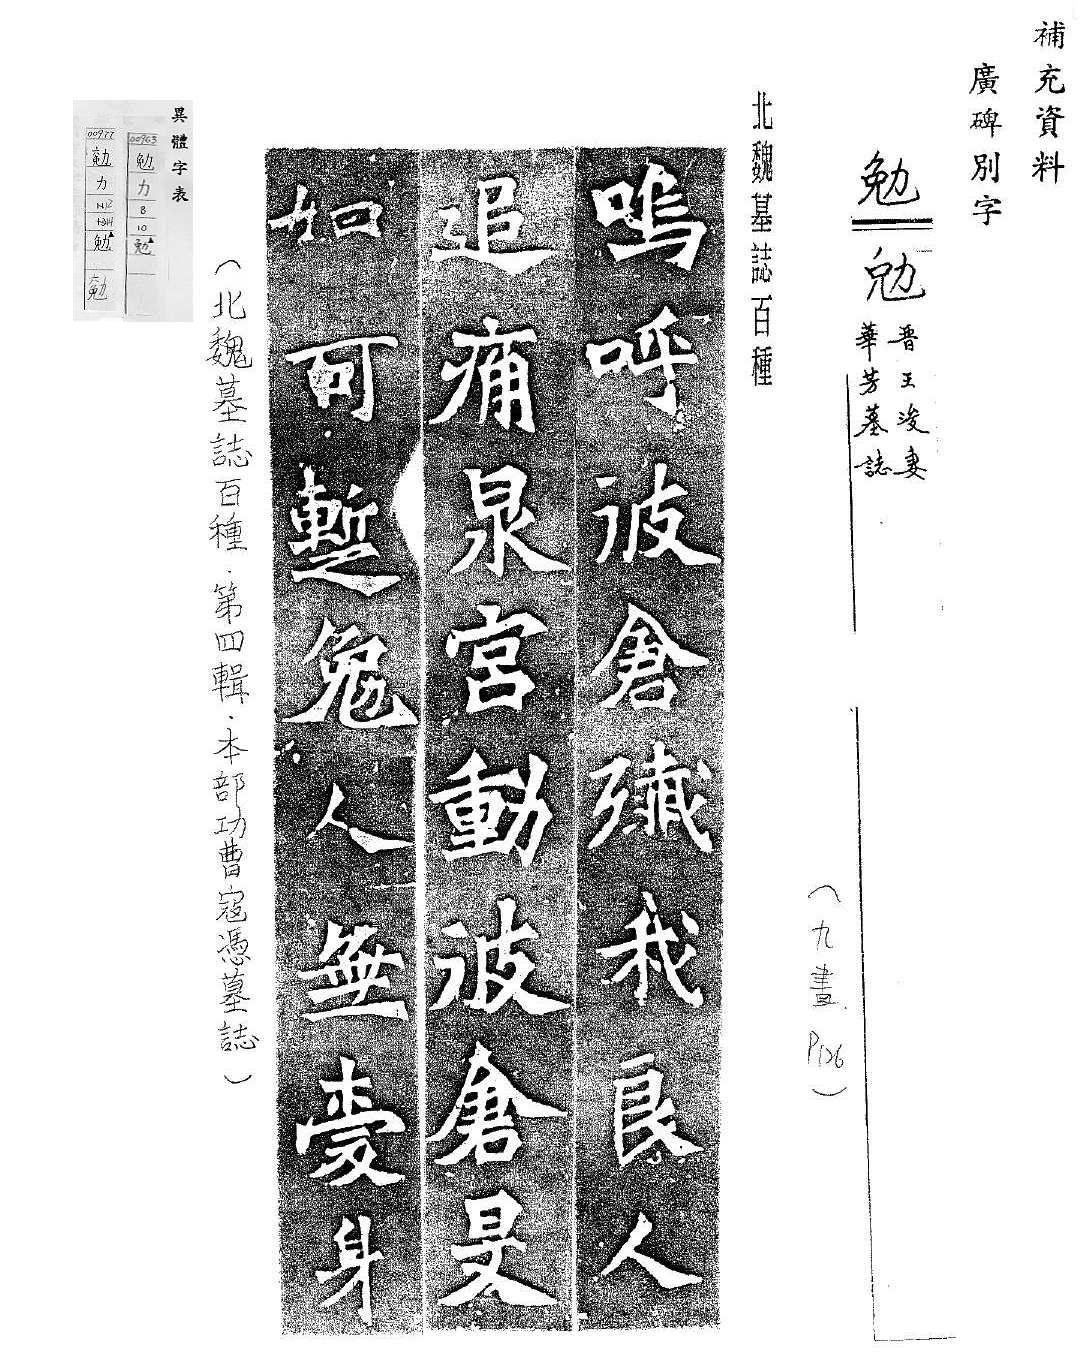 補充資料
廣碑別字
勉
勉
晋王浚妻
華芳墓誌
（九畫 P126）
北魏墓誌百種
嗚呼彼倉殲我良人
追痛泉宮動彼倉旻
如可蹔兔人無壹身
（北魏墓誌百種．第四輯．本部功曹寇憑墓誌）
異體字表
00963
勉
力
8
10
勉
00977
力